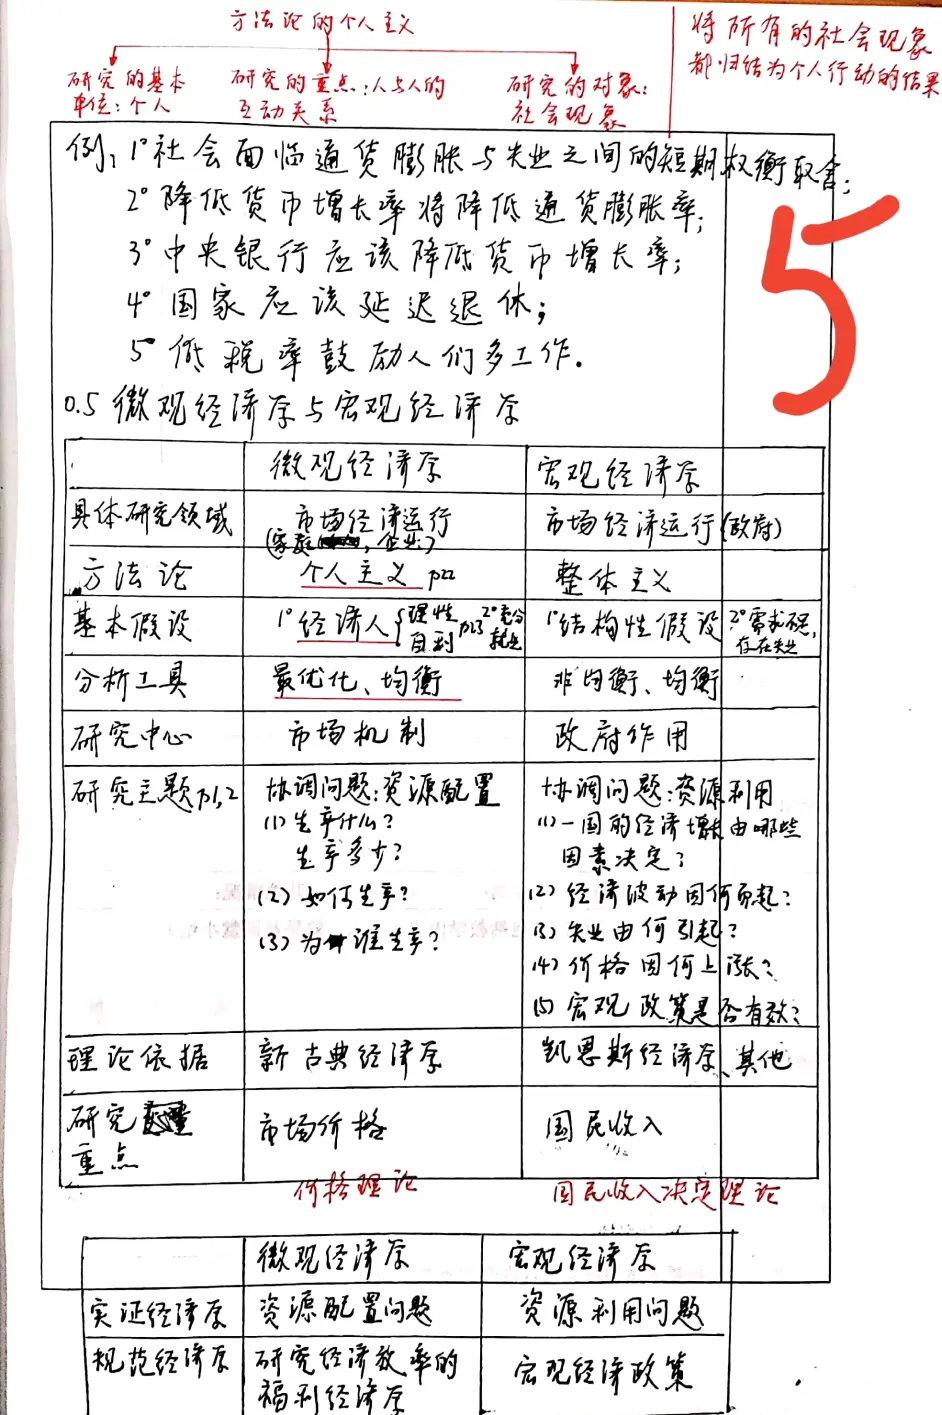 方法论的个人主义
研究的基本
单位：个人
研究的重点：人与人的
互动关系
研究的对象：
社会现象
将所有的社会现象
都归结为个人行动的结果
例：1°社会面临通货膨胀与失业之间的短期权衡取舍；
2°降低货币增长率将降低通货膨胀率；
3°中央银行应该降低货币增长率；
4°国家应该延迟退休；
5°低税率鼓励人们多工作。
5
0.5 微观经济学与宏观经济学
微观经济学 宏观经济学
具体研究领域 市场经济运行 市场经济运行(政府)
(家庭，企业)
方法论 个人主义 P22 整体主义
基本假设 1°经济人{理性 自利 P23 2°充分就业 1°结构性假设 2°需求不足，存在失业
分析工具 最优化、均衡 非均衡、均衡
研究中心 市场机制 政府作用
研究主题P1,2 协调问题：资源配置 协调问题：资源利用
(1)生产什么？
生产多少？
(2)如何生产？
(3)为谁生产？
(1)一国的经济增长由哪些
因素决定？
(2)经济波动因何而起？
(3)失业由何引起？
(4)价格因何上涨？
(5)宏观政策是否有效？
理论依据 新古典经济学 凯恩斯经济学、其他
研究
重点 市场价格 国民收入
价格理论 国民收入决定理论
微观经济学 宏观经济学
实证经济学 资源配置问题 资源利用问题
规范经济学 研究经济效率的
福利经济学 宏观经济政策